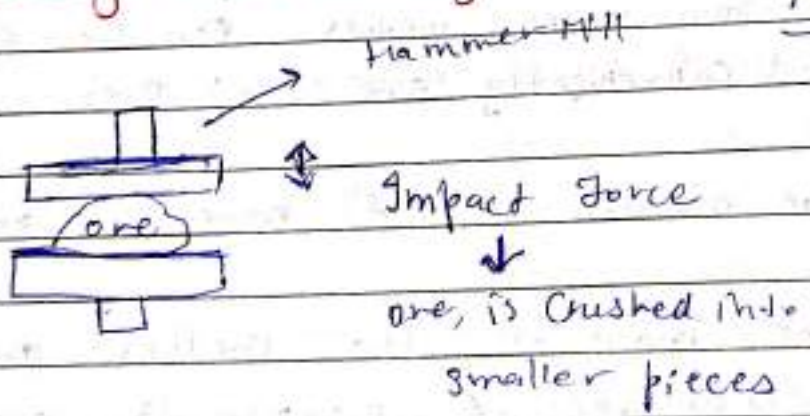 Hammer Mill
Impact Force
ore
ore, is Crushed into
smaller pieces